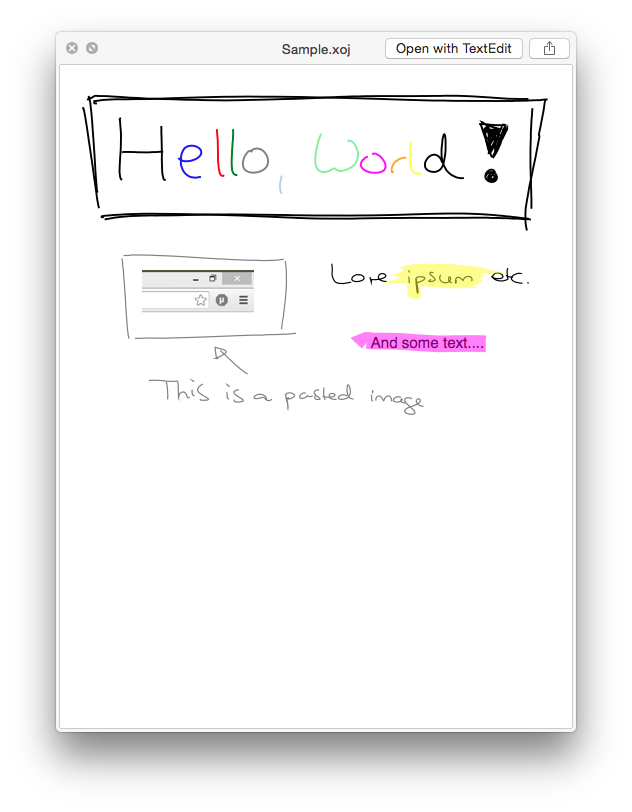 Sample.xoj
Open with TextEdit
Hello, World!
Lore ipsum etc.
µ
And some text....
This is a pasted image